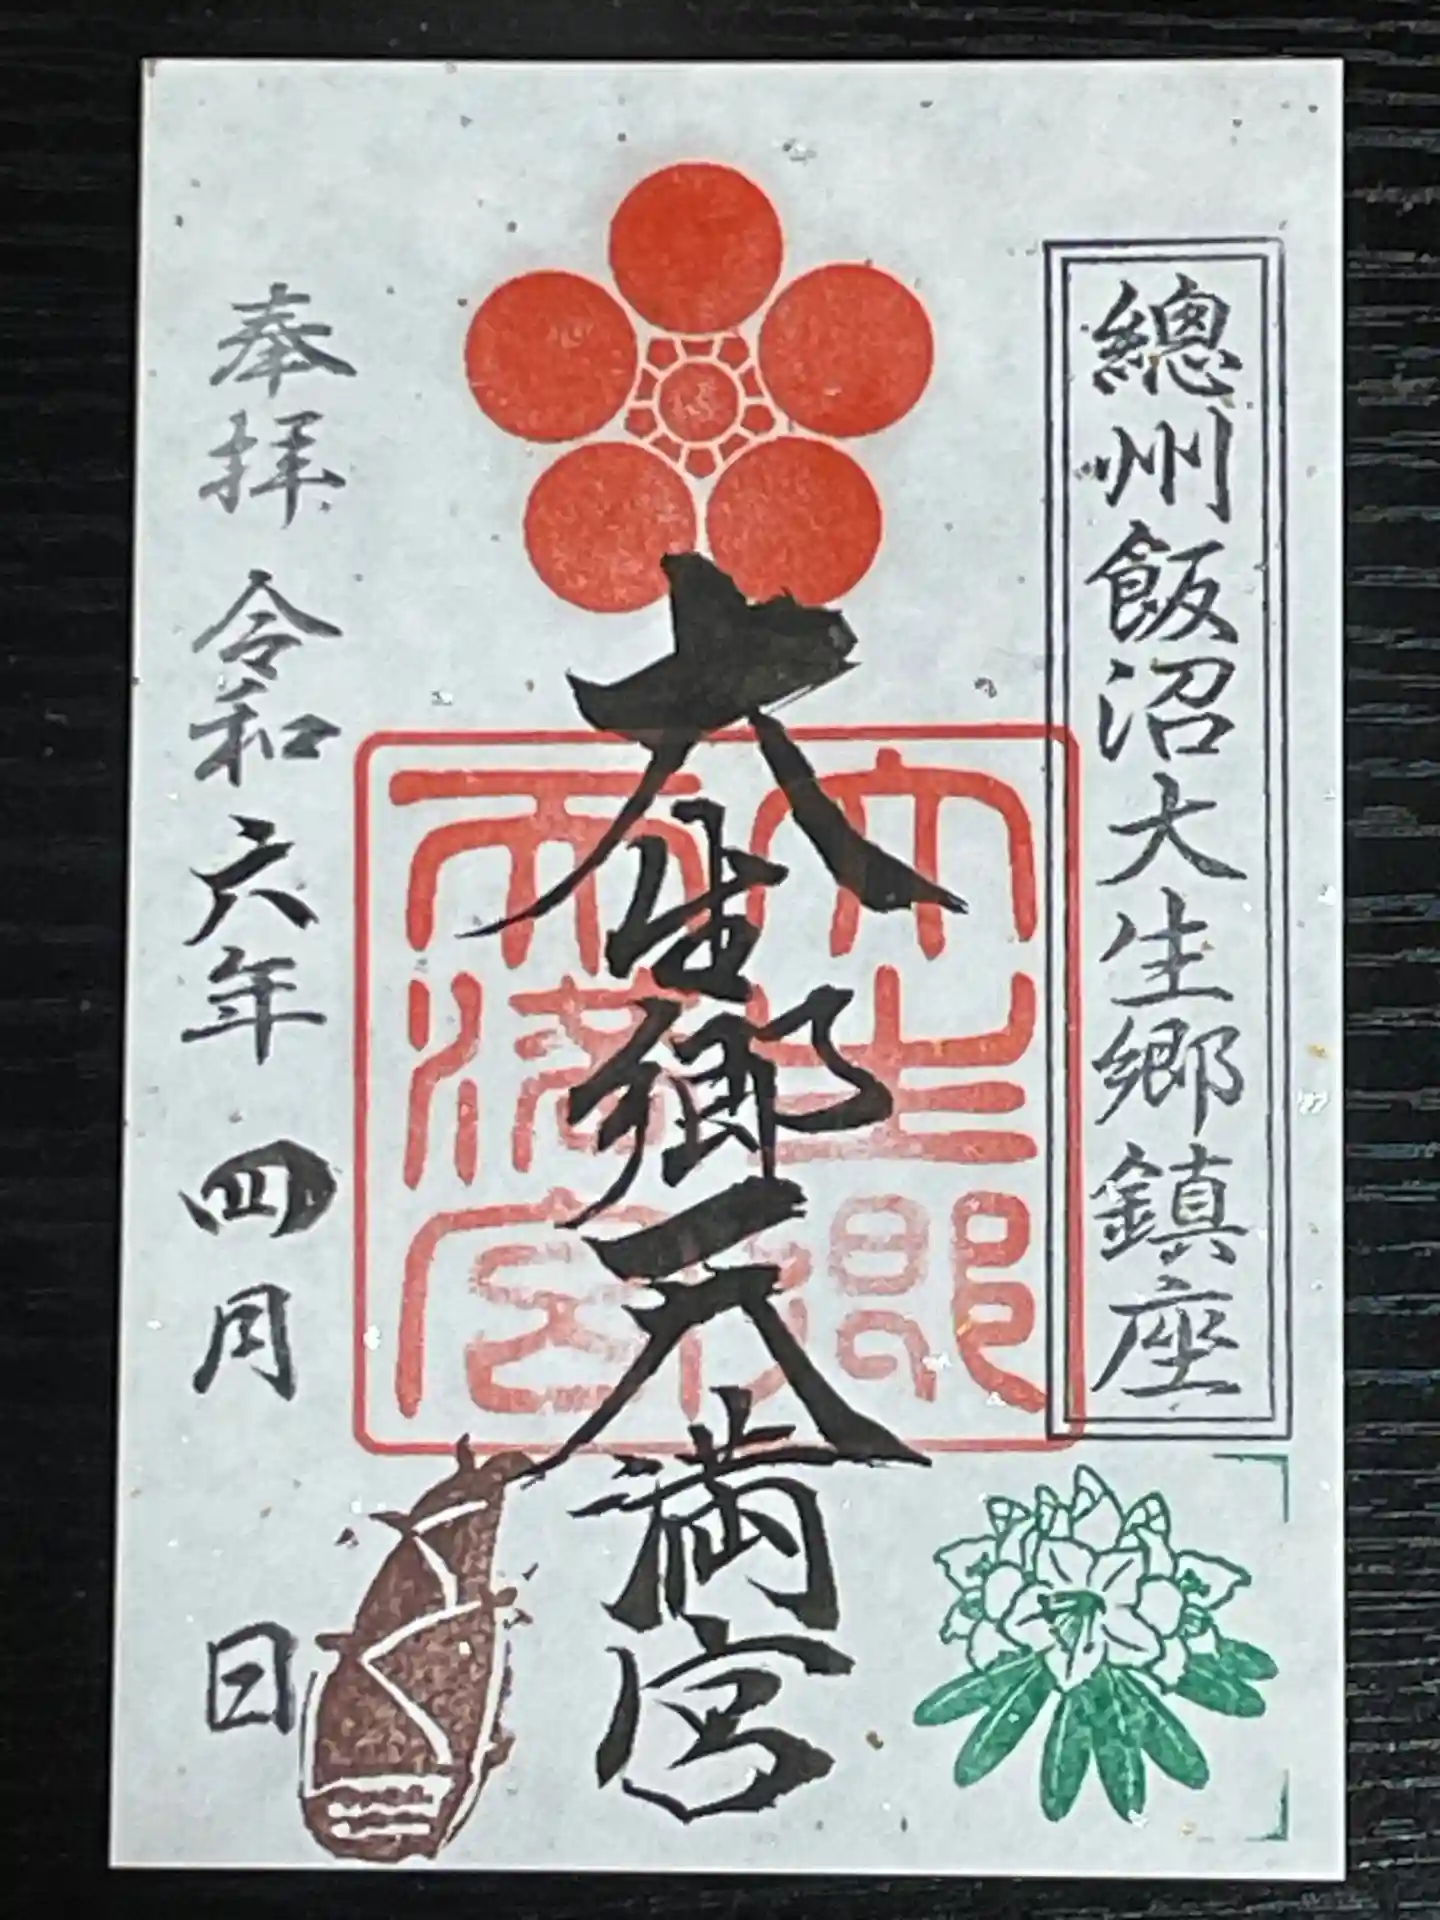 總州飯沼大生郷鎮座
大生郷天満宮
大生郷
天満宮
奉拝 令和六年 四月 日